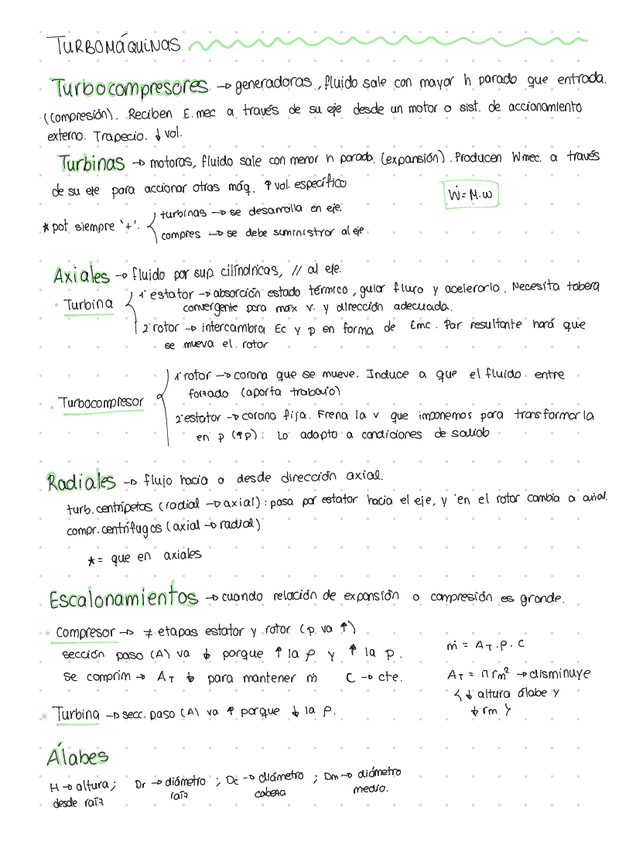 TURBOMÁQUINAS
Turbocompresores → generadoras, fluido sale con mayor h parado que entrada.
(compresión). Reciben E.mec a través de su eje desde un motor o sist. de accionamiento
externo. Trapecio. ↓ vol.
Turbinas → motoras, fluido sale con menor h parada. (expansión). Producen Wmec. a través
de su eje para accionar otras máq. ↑ vol. específico
Ẇ = M.w
* pot siempre '+'.
turbinas → se desarrolla en eje.
compres → se debe suministrar al eje
Axiales → fluido por sup. cilíndricas, // al eje.
• Turbina
1º estator → absorción estado térmico, guiar flujo y acelerarlo. Necesita tobera
convergente para max v. y dirección adecuada.
2º rotor → intercambia Ec y p en forma de Emc. Par resultante hará que
se mueva el rotor
• Turbocompresor
1º rotor → corona que se mueve. Induce a que el fluido entre
forzado (aporta trabajo)
2º estator → corona fija. Frena la v que imponemos para transformarla
en p (↑p): Lo adapto a condiciones de salida
Radiales → flujo hacia o desde dirección axial.
turb. centrípetas (radial → axial): pasa por estator hacia el eje, y en el rotor cambia a axial.
compr. centrífugos (axial → radial)
* = que en axiales
Escalonamientos → cuando relación de expansión o compresión es grande.
• Compresor → ≠ etapas estator y rotor (p va ↑)
sección paso (A) va ↓ porque ↑ la ρ y ↑ la p.
se comprim → A_T ↓ para mantener ṁ C → cte.
ṁ = A_T . ρ . C
A_T = π rm² → disminuye
{ ↓ altura álabe y
↓ rm }
• Turbina → secc. paso (A) va ↑ porque ↓ la ρ.
Álabes
H → altura; Dr → diámetro ; Dc → diámetro ; Dm → diámetro
desde raíz raíz cabeza medio.